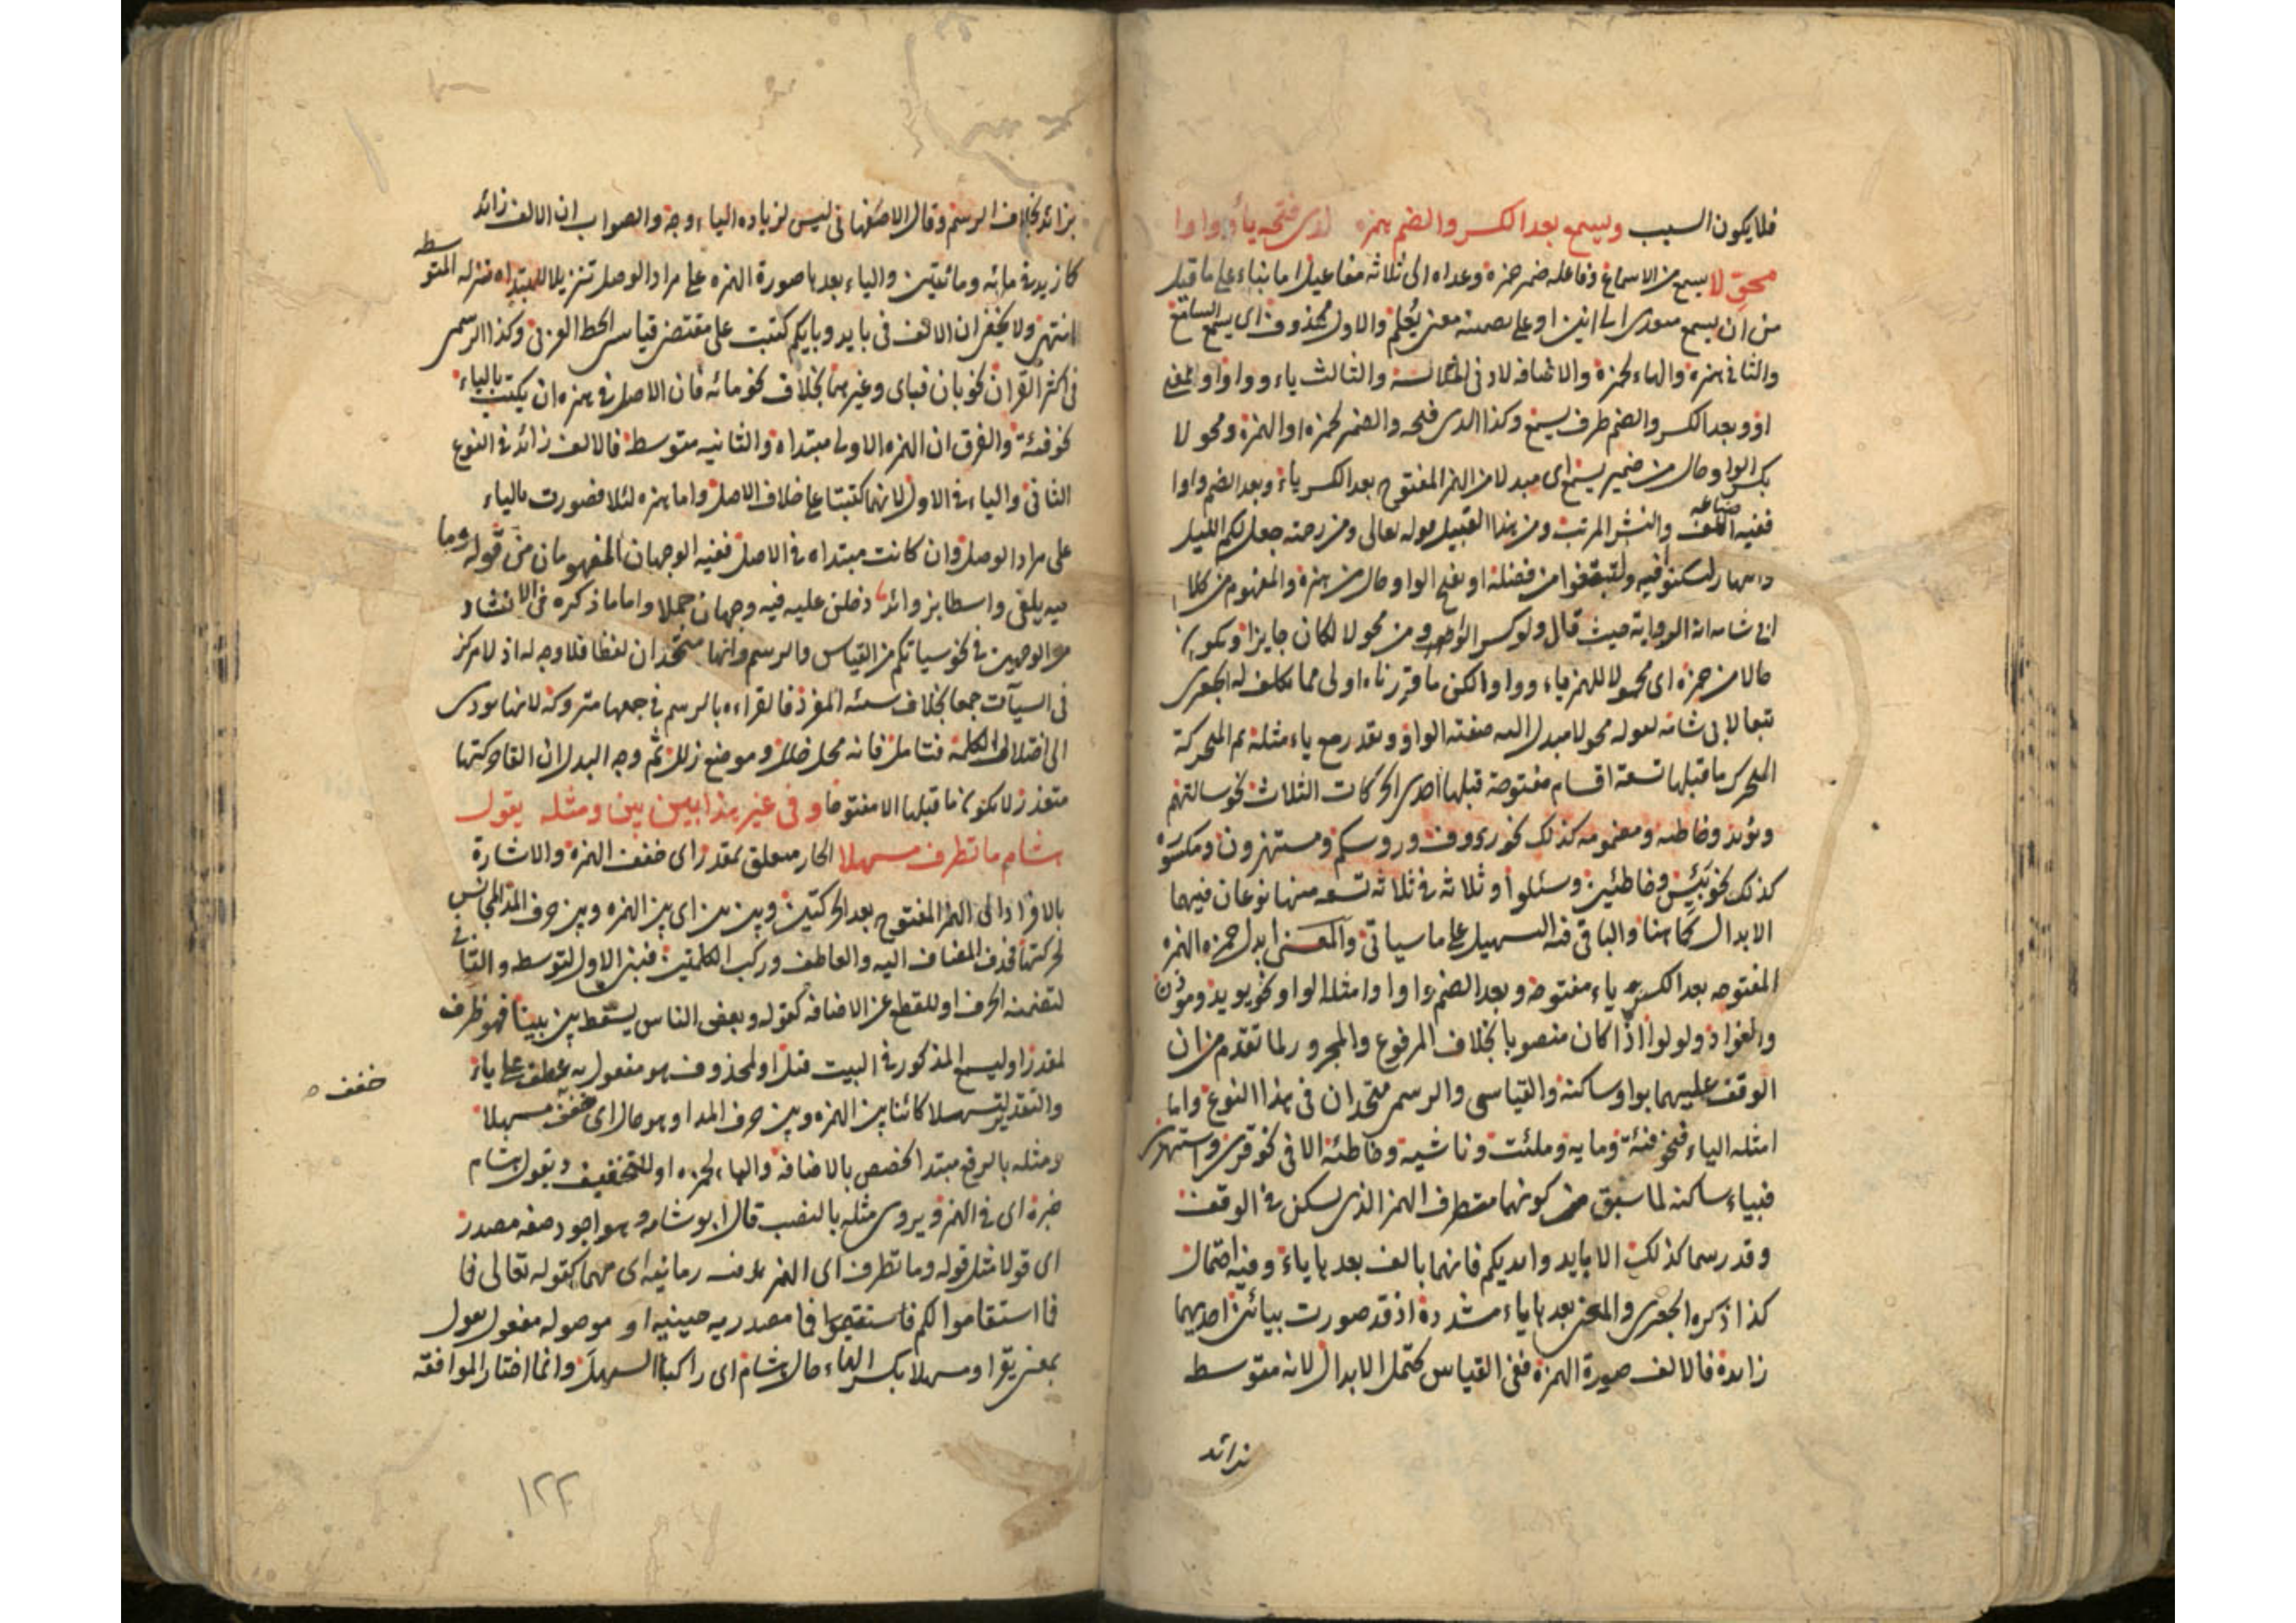 فلا يكون السبب ويسمع بعد الكسر والضم همزه لدى فتحه ياء وواوا
محولا يسمع من الاسماع وفاعله ضمير حمزة وعداه الى ثلاثة مفاعيل اما بناء على ما قيل
من ان يسمع متعدى الى اثنين او على تضمنه معنى يُعلم والاول محذوف اى يسمع السامع
والثانى همزه والهاء لحمزة والاضافه لادنى الملابسة والثالث ياء وواوا
او وبعد الكسر والضم ظرف يسمع وكذا لدى فتحه والضمير لحمزة او الهمزة ومحولا
بكسر الواو حال من ضمير يسمع اى مبدلا من الهمز المفتوح بعد الكسر ياء وبعد الضم واوا
ففيه صناعة اللف والنشر المرتب ومن هذا القبيل قوله تعالى ومن رحمته جعل لكم الليل
والنهار لتسكنوا فيه ولتبتغوا من فضله او بفتح الواو حال من همزه والمفهوم من كلام
ابى شامه انه الرواية حيث قال ولو كسر الواو من محولا لكان جايزا ويكون
حالا من حمزه اى محولا للهمز ياء وواوا لكن ما قررناه اولى مما تكلف له الجعبرى
تبعا لابى شامه لقوله محولا مبدل اليه صفته الواو ويقدر مع ياء مثله ثم المتحركة
المتحرك ما قبلها تسعة اقسام مفتوحة قبلها احدى الحركات الثلاث نحو سالتهم
ويؤيد وخاطئه ومضمومه كذلك نحو رءوف وروسكم ومستهزون ومكسوره
كذلك نحو بَئِيس وخاطئين وسئلوا وثلاثة فى ثلاثه تسعه منها نوعان فيهما
الابدال كما هنا والباقى فيه التسهيل على ما سياتى والمعنى ابدل حمزه الهمزه
المفتوحه بعد الكسر ياء مفتوحة وبعد الضم واوا وامثله الواو نحو يويد وموذن
والفواد ولولوا اذا كان منصوبا بخلاف المرفوع والمجرور لما تقدم من ان
الوقف عليهما بواو ساكنة والقياسى والرسمى متحدان فى هذا النوع واما
امثله الياء فنحو فئة ومايه وملئت وناشية وخاطئة الا فى نحو قرئ واستهزئ
فبياء ساكنه لما سبق من كونهما متطرف الهمز الذى يسكن فى الوقف
وقد رسما كذلك الا بايد وبايكم فانهما بالف بعدها ياء وفيه احتمال
كذا ذكره الجعبرى والمعنى بعدها ياء مشددة اذ قد صورت بيائين احديهما
زايدة فالالف صورة الهمزة ففى القياس تحتمل الابدال لانه متوسط
زائد
بزائد بخلاف الرسم وقال الاصفهانى ليس لزياده الياء وجه والصواب ان الالف زائد
كما زيدت فى مائه ومائتين والياء بعدها صورة الهمزه على مراد الوصل تنزيلا للمبتداه منزله المتوسط
انتهى ولا يخفى ان الالف فى بايد وبايكم كتبت على مقتضى قياس الخط العربى وكذا الرسمى
فى اكثر القرآن نحو بان فباى وغيرهما بخلاف نحو مائه فان الاصل فى همزه ان يكتب بالياء
نحو فئة والفرق ان الهمزه الاولى مبتداة والثانيه متوسط فالالف زائد فى النوع
الثانى والياء فى الاول لانهما كتبتا على خلاف الاصل واما همزه لئلا فصورت بالياء
على مراد الوصل وان كانت مبتداه فى الاصل ففيه الوجهان المفهومان من قوله وما
فيه يلفى واسطا بزوائد دخلن عليه فيه وجهان جملا واما ما ذكره فى الانشاد
من الوجهين فى نحو سياتكم من القياس والرسم وانهما متحدان لفظا فلا وجه له اذ لا مركز
فى السيآت جمعا بخلاف سيئه المفرد فالقراءه بالرسم فى جمعها متروكة لانها تودى
الى اختلاط الكلمة فتامل فانه محل خلل وموضع زلل ثم وجه البدل ان القاء حركتها
متعذر لا يكون ما قبلها الا مفتوحا وفى غير هذا بين بين ومثله يقول
هشام ما تطرف مسهلا الجار متعلق بمقدر اى خفف الهمزه والاشارة
بالافراد الى الهمز المفتوح بعد الحركتين وبين بين اى بين الهمزه وبين حرف المد المجانس
لحركتها فحذف المضاف اليه والعاطف وركب الكلمتين فبنى الاول لتوسطه والثانى
لتضمنه الحرف او للقطع عن الاضافه كقوله وبعض الناس يسقط بين بينا فهو ظرف
لمقدر او ليسمع المذكور فى البيت قبل او لمحذوف هو مفعول به عطف على ياء
والتقدير تسهيلا كائنا بين الهمزه وبين حرف المد او هو حال اى خفف مسهلا
خفف
ومثله بالرفع مبتدا لتخصص بالاضافه والهاء لحمزه او للتخفيف ويقول هشام
خبره اى فى الهمز ويروى مثله بالنصب قال ابو شامه وهو اجود صفه مصدر
اى قولا مثل قوله وما تطرف اى الهمز طرف زمانيه اى مهما كقوله تعالى فما
فما استقاموا لكم فاستقيموا فما مصدريه حينيه او موصوله مفعول يقول
بمعنى يقرا ومسهلا بكسر الهاء حال هشام اى راكبا السهل وانما اختار الموافقه
١٢٢